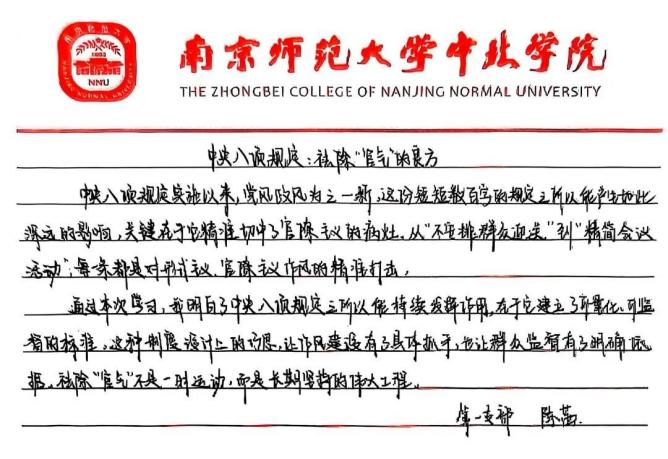 南京师范大学
1902
NNU
NANJING NORMAL UNIVERSITY
南京师范大学中北学院
THE ZHONGBEI COLLEGE OF NANJING NORMAL UNIVERSITY
中央八项规定：祛除“官气”的良方
中央八项规定实施以来，党风政风为之一新，这份短短数百字的规定之所以能产生如此
深远的影响，关键在于它精准切中了官僚主义的病灶。从“不安排群众迎送”到“精简会议
活动”，每条都是对形式主义、官僚主义作风的精准打击。
通过本次学习，我明白了中央八项规定之所以能持续发挥作用，在于它建立了可量化、可监
督的标准，这种制度设计上的巧思，让作风建设有了具体抓手，也让群众监督有了明确依
据。祛除“官气”不是一时运动，而是长期坚持的伟大工程。
第一支部 陈菡